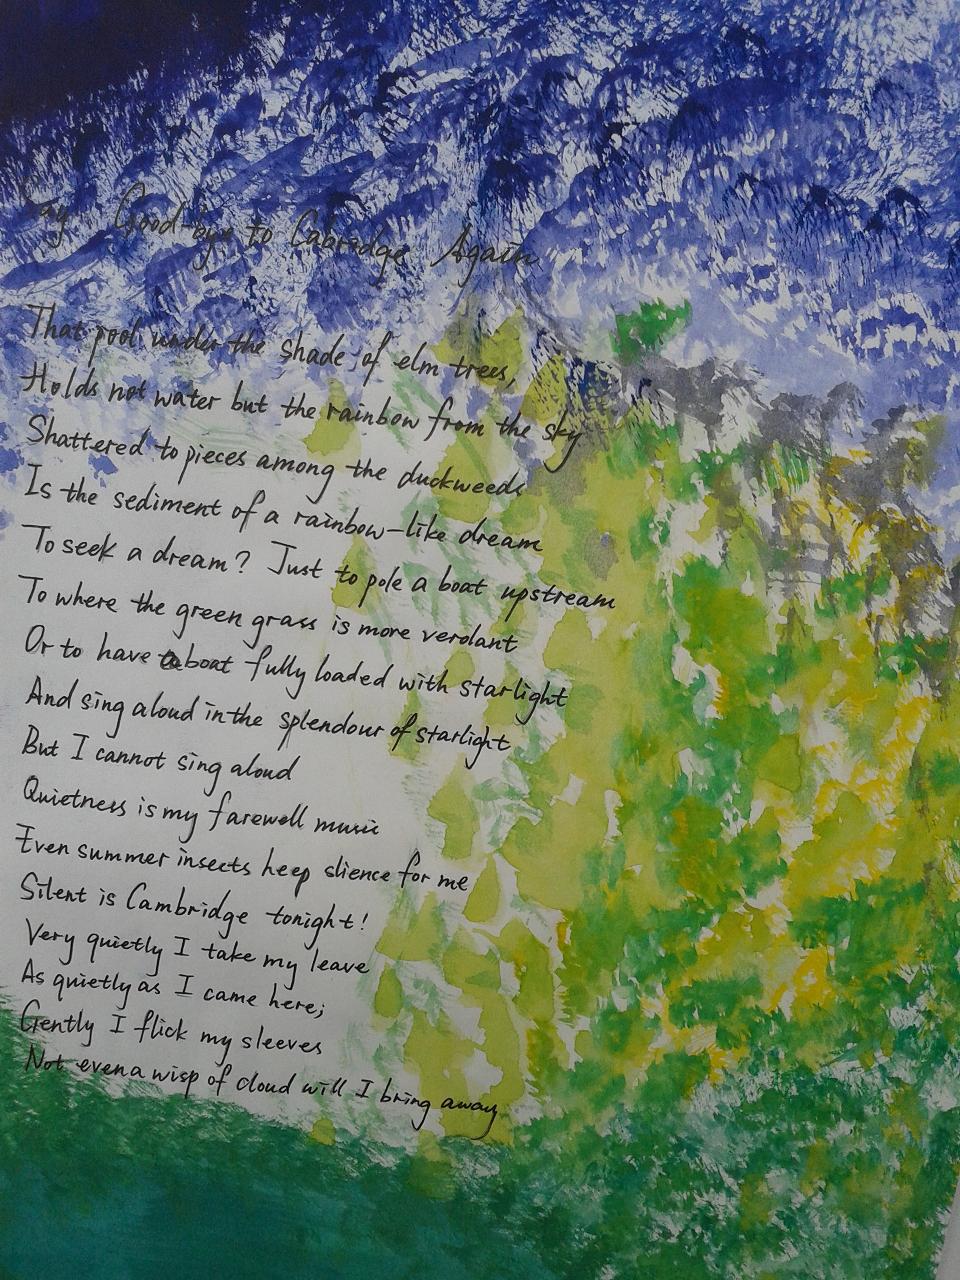 Say Good-bye to Cabridge Again
That pool under the shade of elm trees,
Holds not water but the rainbow from the sky
Shattered to pieces among the duckweeds
Is the sediment of a rainbow-like dream
To seek a dream? Just to pole a boat upstream
To where the green grass is more verdant
Or to have a boat fully loaded with starlight
And sing aloud in the splendour of starlight
But I cannot sing aloud
Quietness is my farewell music
Even summer insects heep slience for me
Silent is Cambridge tonight!
Very quietly I take my leave
As quietly as I came here;
Gently I flick my sleeves
Not even a wisp of cloud will I bring away